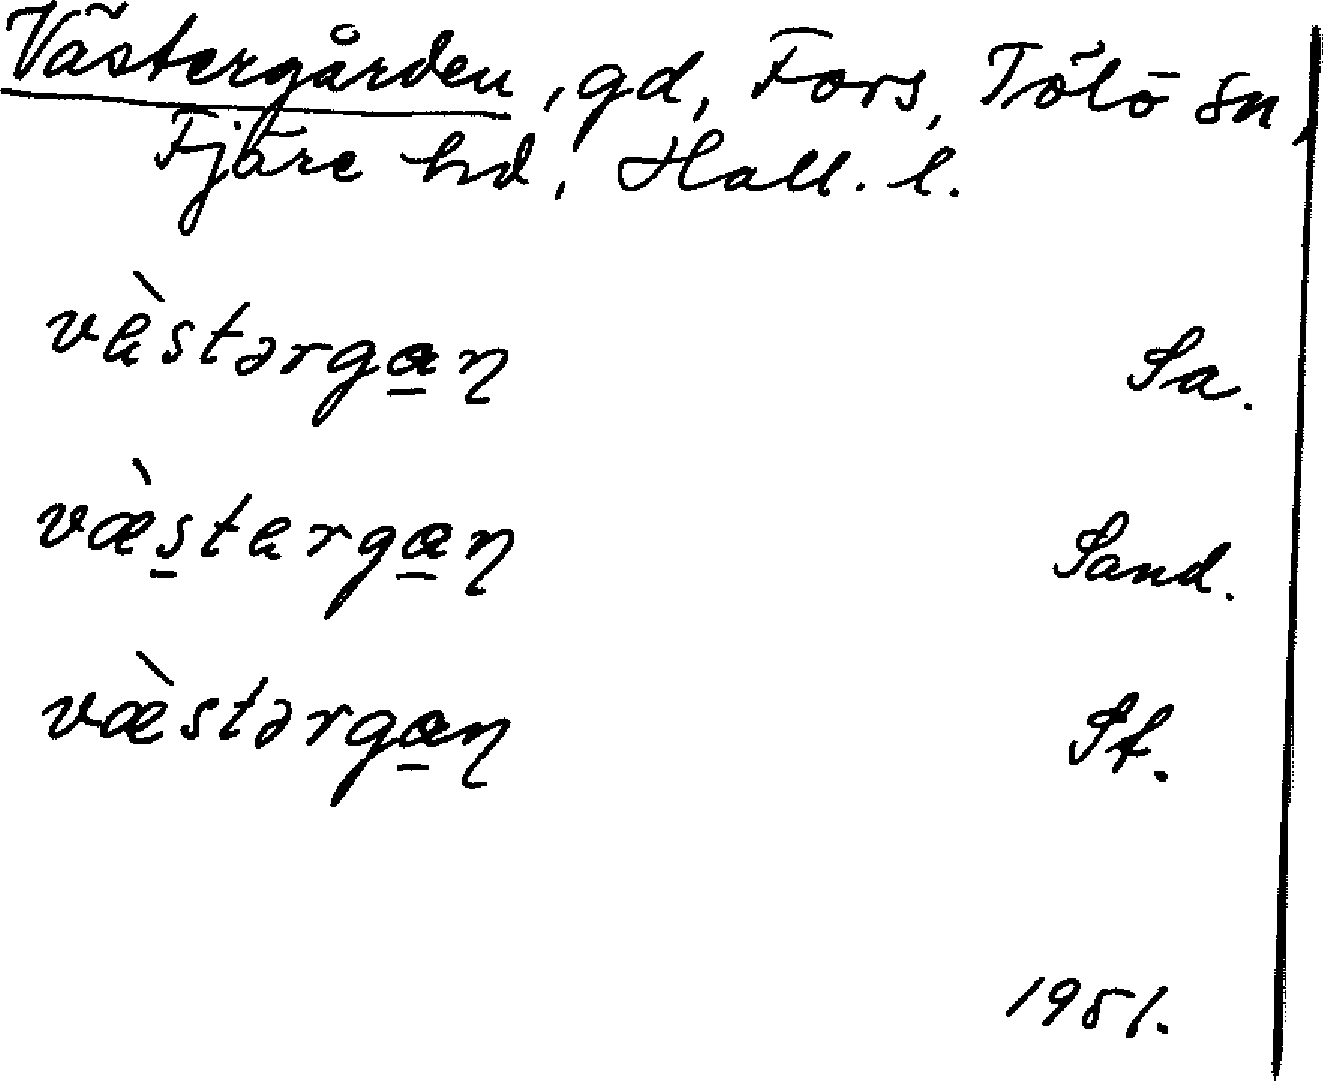 Västergården, gd, Fors, Tölö sn,
Fjäre hd, Hall. l.
vä̀stərgaɳ Sa.
væ̀stärgaɳ Sand.
væ̀stərgaɳ St.
1951.